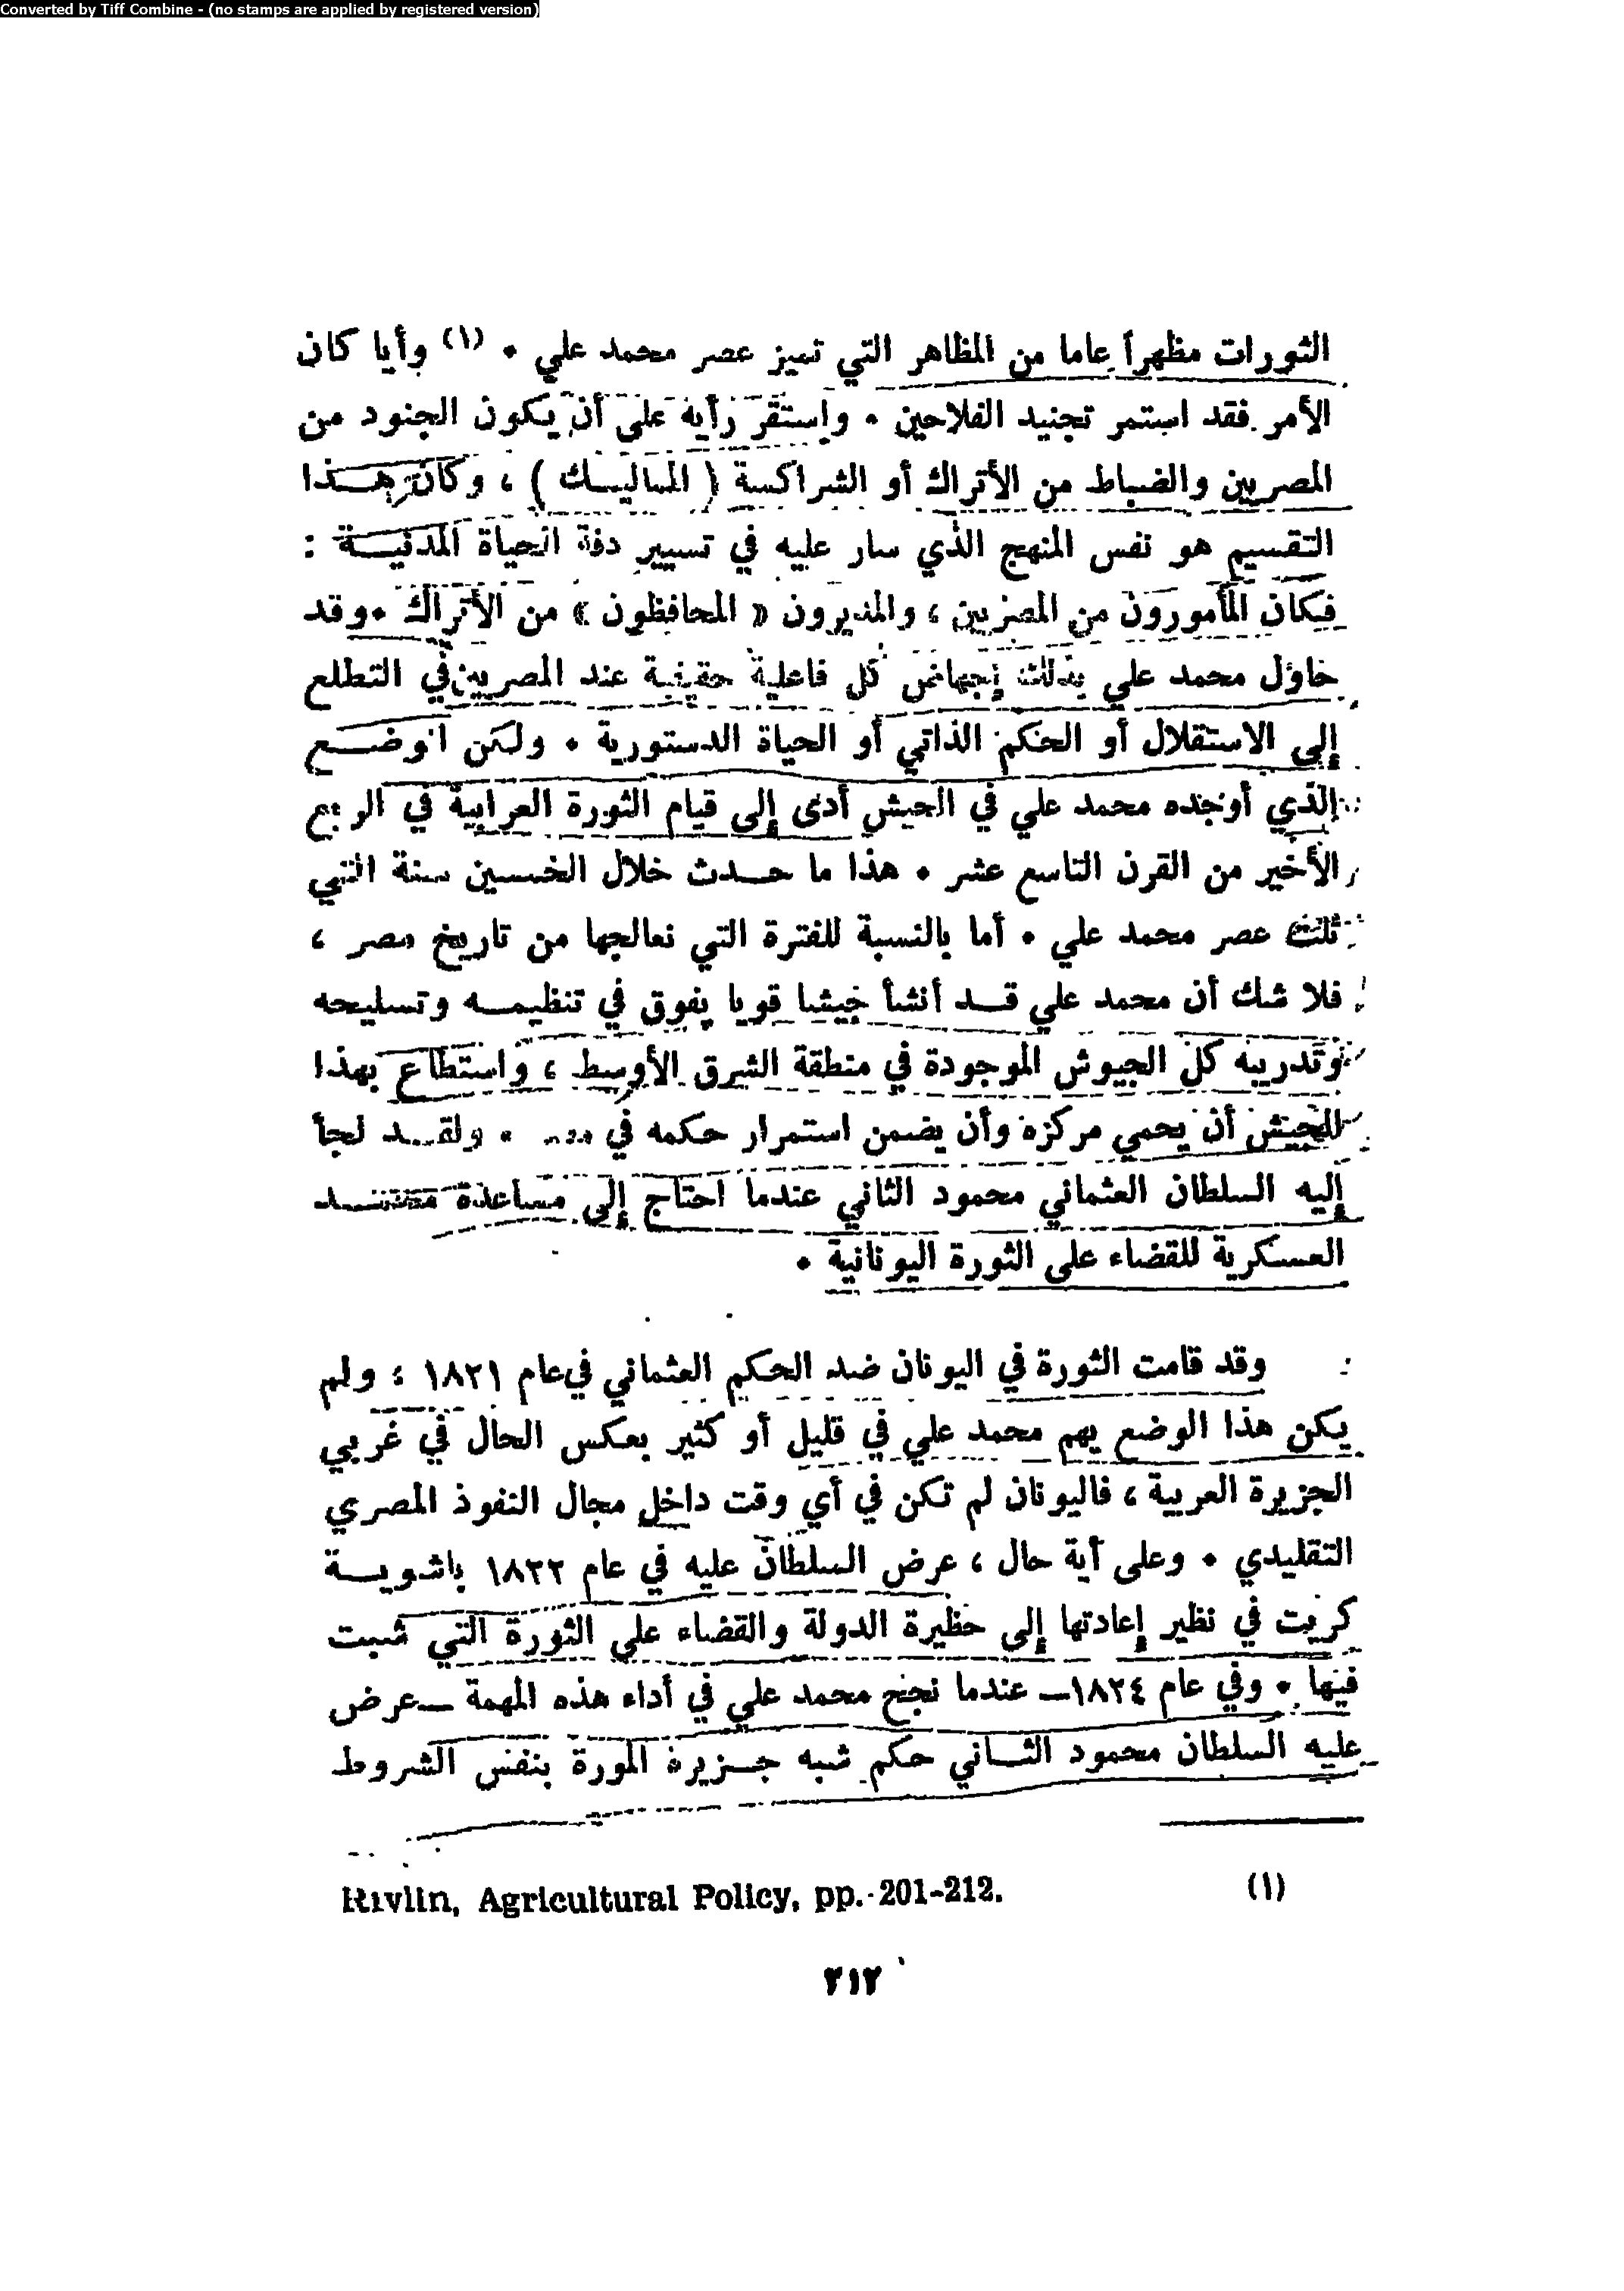 Converted by Tiff Combine - (no stamps are applied by registered version)
الثورات مظهراً عاما من المظاهر التي تميز عصر محمد علي . (١) وأيا كان
الأمر فقد استمر تجنيد الفلاحين . واستقر رأيه على أن يكون الجنود من
المصريين والضباط من الأتراك أو الشراكسة ( المماليك ) ، وكان هذا
التقسيم هو نفس المنهج الذي سار عليه في تسيير دفة الحياة المدنية :
فكان المأمورون من المصريين ، والمديرون « المحافظون » من الأتراك . وقد
حاول محمد علي بذلك إجهاض كل فاعلية حقيقية عند المصريين في التطلع
إلى الاستقلال أو الحكم الذاتي أو الحياة الدستورية . ولكن الوضع
الذي أوجده محمد علي في الجيش أدى إلى قيام الثورة العرابية في الربع
الأخير من القرن التاسع عشر . هذا ما حدث خلال الخمسين سنة التي
تلت عصر محمد علي . أما بالنسبة للفترة التي نعالجها من تاريخ مصر ،
فلا شك أن محمد علي قد أنشأ جيشا قويا يفوق في تنظيمه وتسليحه
وتدريبه كل الجيوش الموجودة في منطقة الشرق الأوسط ، واستطاع بهذا
الجيش أن يحمي مركزه وأن يضمن استمرار حكمه في . ولقد لجأ
إليه السلطان العثماني محمود الثاني عندما احتاج إلى مساعدة
العسكرية للقضاء على الثورة اليونانية .
وقد قامت الثورة في اليونان ضد الحكم العثماني في عام ١٨٢١ ؛ ولم
يكن هذا الوضع يهم محمد علي في قليل أو كثير بعكس الحال في غربي
الجزيرة العربية ، فاليونان لم تكن في أي وقت داخل مجال النفوذ المصري
التقليدي . وعلى أية حال ، عرض السلطان عليه في عام ١٨٢٢ باشوية
كريت في نظير إعادتها إلى حظيرة الدولة والقضاء على الثورة التي شبت
فيها . وفي عام ١٨٢٤ — عندما نجح محمد علي في أداء هذه المهمة — عرض
عليه السلطان محمود الثاني حكم شبه جزيرة المورة بنفس الشروط
(١) Rivlin, Agricultural Policy, pp. 201-212.
٢١٢